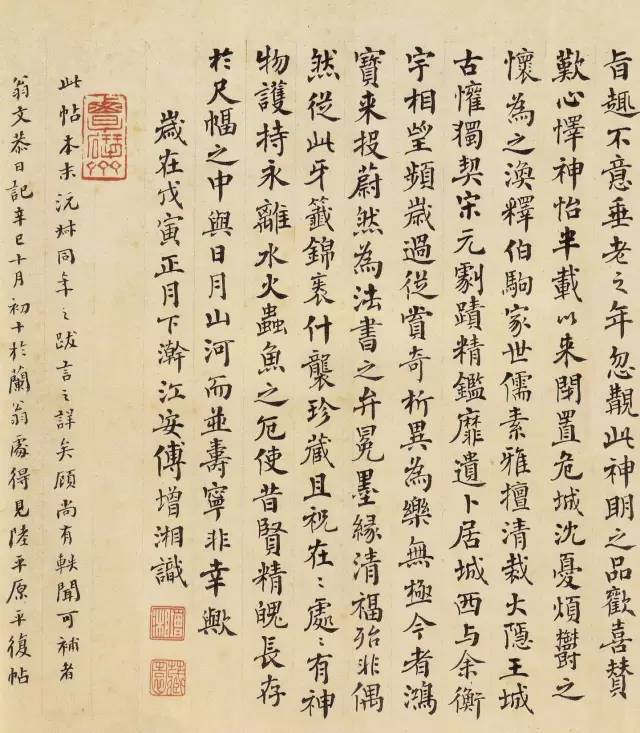 旨趣不意垂老之年忽覩此神明之品歡喜贊
歎心怿神怡半載以來閉置危城沈憂煩鬱之
懷為之渙釋伯駒家世儒素雅擅清裁大隱王城
古懽獨契宋元劇蹟精鑑靡遺卜居城西与余衡
宇相望頻歲過從賞奇析異為樂無極今者鴻
寶來投蔚然為法書之弁冕墨緣清福殆非偶
然從此牙籤錦裹什襲珍藏且祝在〻處〻有神
物護持永離水火蟲魚之厄使昔賢精魄長存
於尺幅之中與日月山河而並壽寧非幸歟
歲在戊寅正月下澣江安傅增湘識
此帖本末沅叔同年之跋言之詳矣顧尚有軼聞可補者
翁文恭日記辛巳十月初十於蘭翁處得見陸平原平復帖